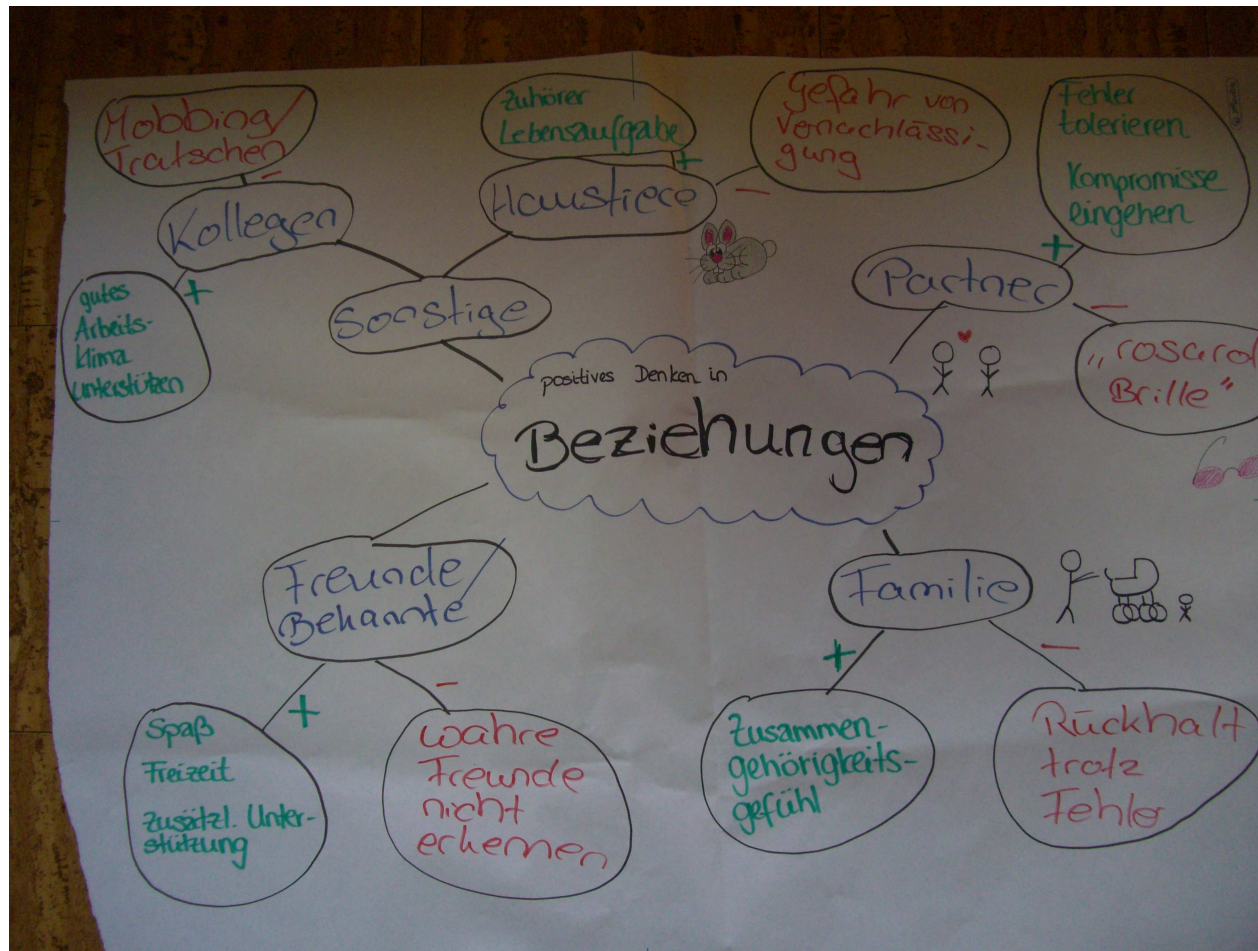 Mobbing/
Tratschen
-
Kollegen
+
gutes
Arbeits-
klima
unterstützen
Sonstige
Zuhörer
Lebensaufgabe
+
Haustiere
-
Gefahr von
Vernachlässi-
gung
Fehler
tolerieren
Kompromisse
eingehen
+
Partner
-
"rosaro
Brille"
positives Denken in
Beziehungen
Freunde/
Bekannte
+
Spaß
Freizeit
zusätzl. Unter-
stützung
-
wahre
Freunde
nicht
erkennen
Familie
+
Zusammen-
gehörigkeits-
gefühl
-
Rückhalt
trotz
Fehler